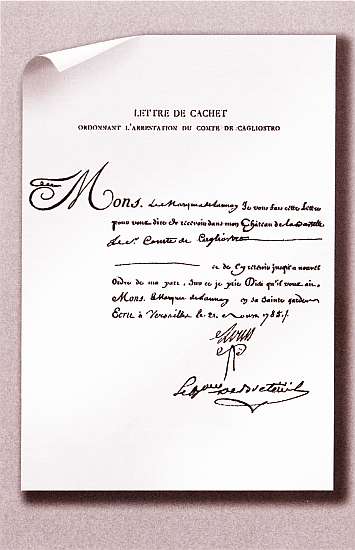 LETTRE DE CACHET
ORDONNANT L'ARRESTATION DU COMTE DE CAGLIOSTRO
Mons. Le Marquis de Launay Je vous fais cette Lettre
pour vous dire de recevoir dans mon Château de la Bastille
Le Sr. Comte de Cagliostro
et de l'y retenir jusqu'à nouvel
Ordre de ma part. Sur ce je prie Dieu qu'il vous ait
Mons. le Marquis de Launay en sa Sainte garde
Ecrit à Versailles le 21. 1785./.
Louis
Le Bon De Breteüil